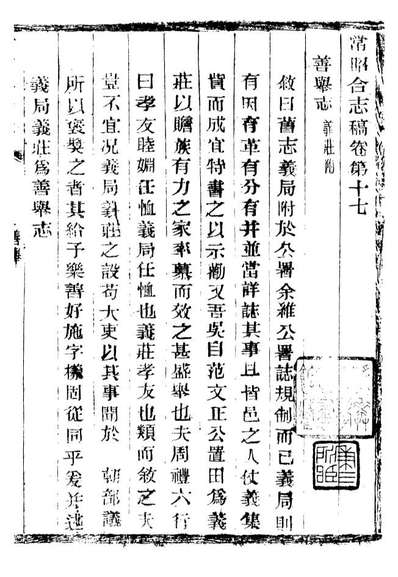 常昭合志稿卷第十七
善舉志 義莊附
敘曰舊志義局附於公署余維公署誌規制而已義局則
有因有革有分有并並當詳誌其事且皆邑之人仗義集
貲而成宜特書之以示勸又吾吳自范文正公置田爲義
莊以贍族有力之家率慕而效之甚盛舉也夫周禮六行
曰孝友睦婣任恤義局任恤也義莊孝友也類而敘之夫
豈不宜况義局義莊之設苟大吏以其事聞於 朝部議
所以褒獎之者其給予樂善好施字樣固從同乎爰并述
義局義莊爲善舉志